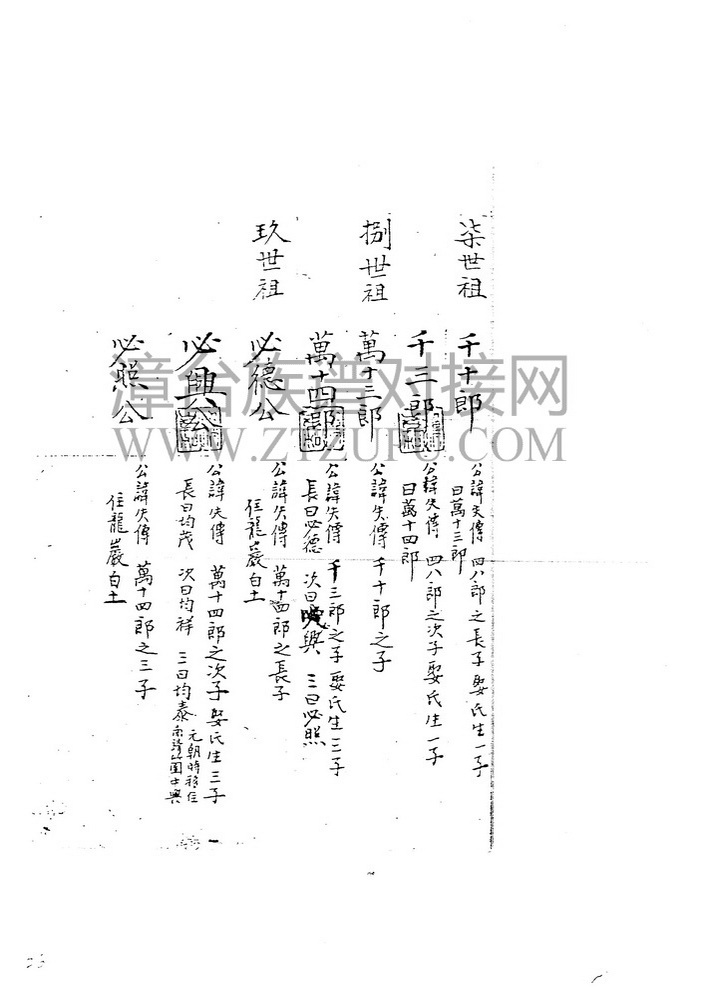 柒世祖
千十郎
公諱失傳 四八郎之長子 娶氏生一子
曰萬十三郎
千三郎
公諱失傳 四八郎之次子 娶氏生一子
曰萬十四郎
捌世祖
萬十三郎
公諱失傳 千十郎之子
萬十四郎
公諱失傳 千三郎之子 娶氏生三子
長曰必德 次曰必興 三曰必照
玖世祖
必德公
公諱失傳 萬十四郎之長子
住龍巖白土
必興公
公諱失傳 萬十四郎之次子 娶氏生三子
長曰均茂 次曰均祥 三曰均泰
元朝時移住
必照公
公諱失傳 萬十四郎之三子
住龍巖白土
漳台族谱对接网
WWW.ZTZUPU.COM